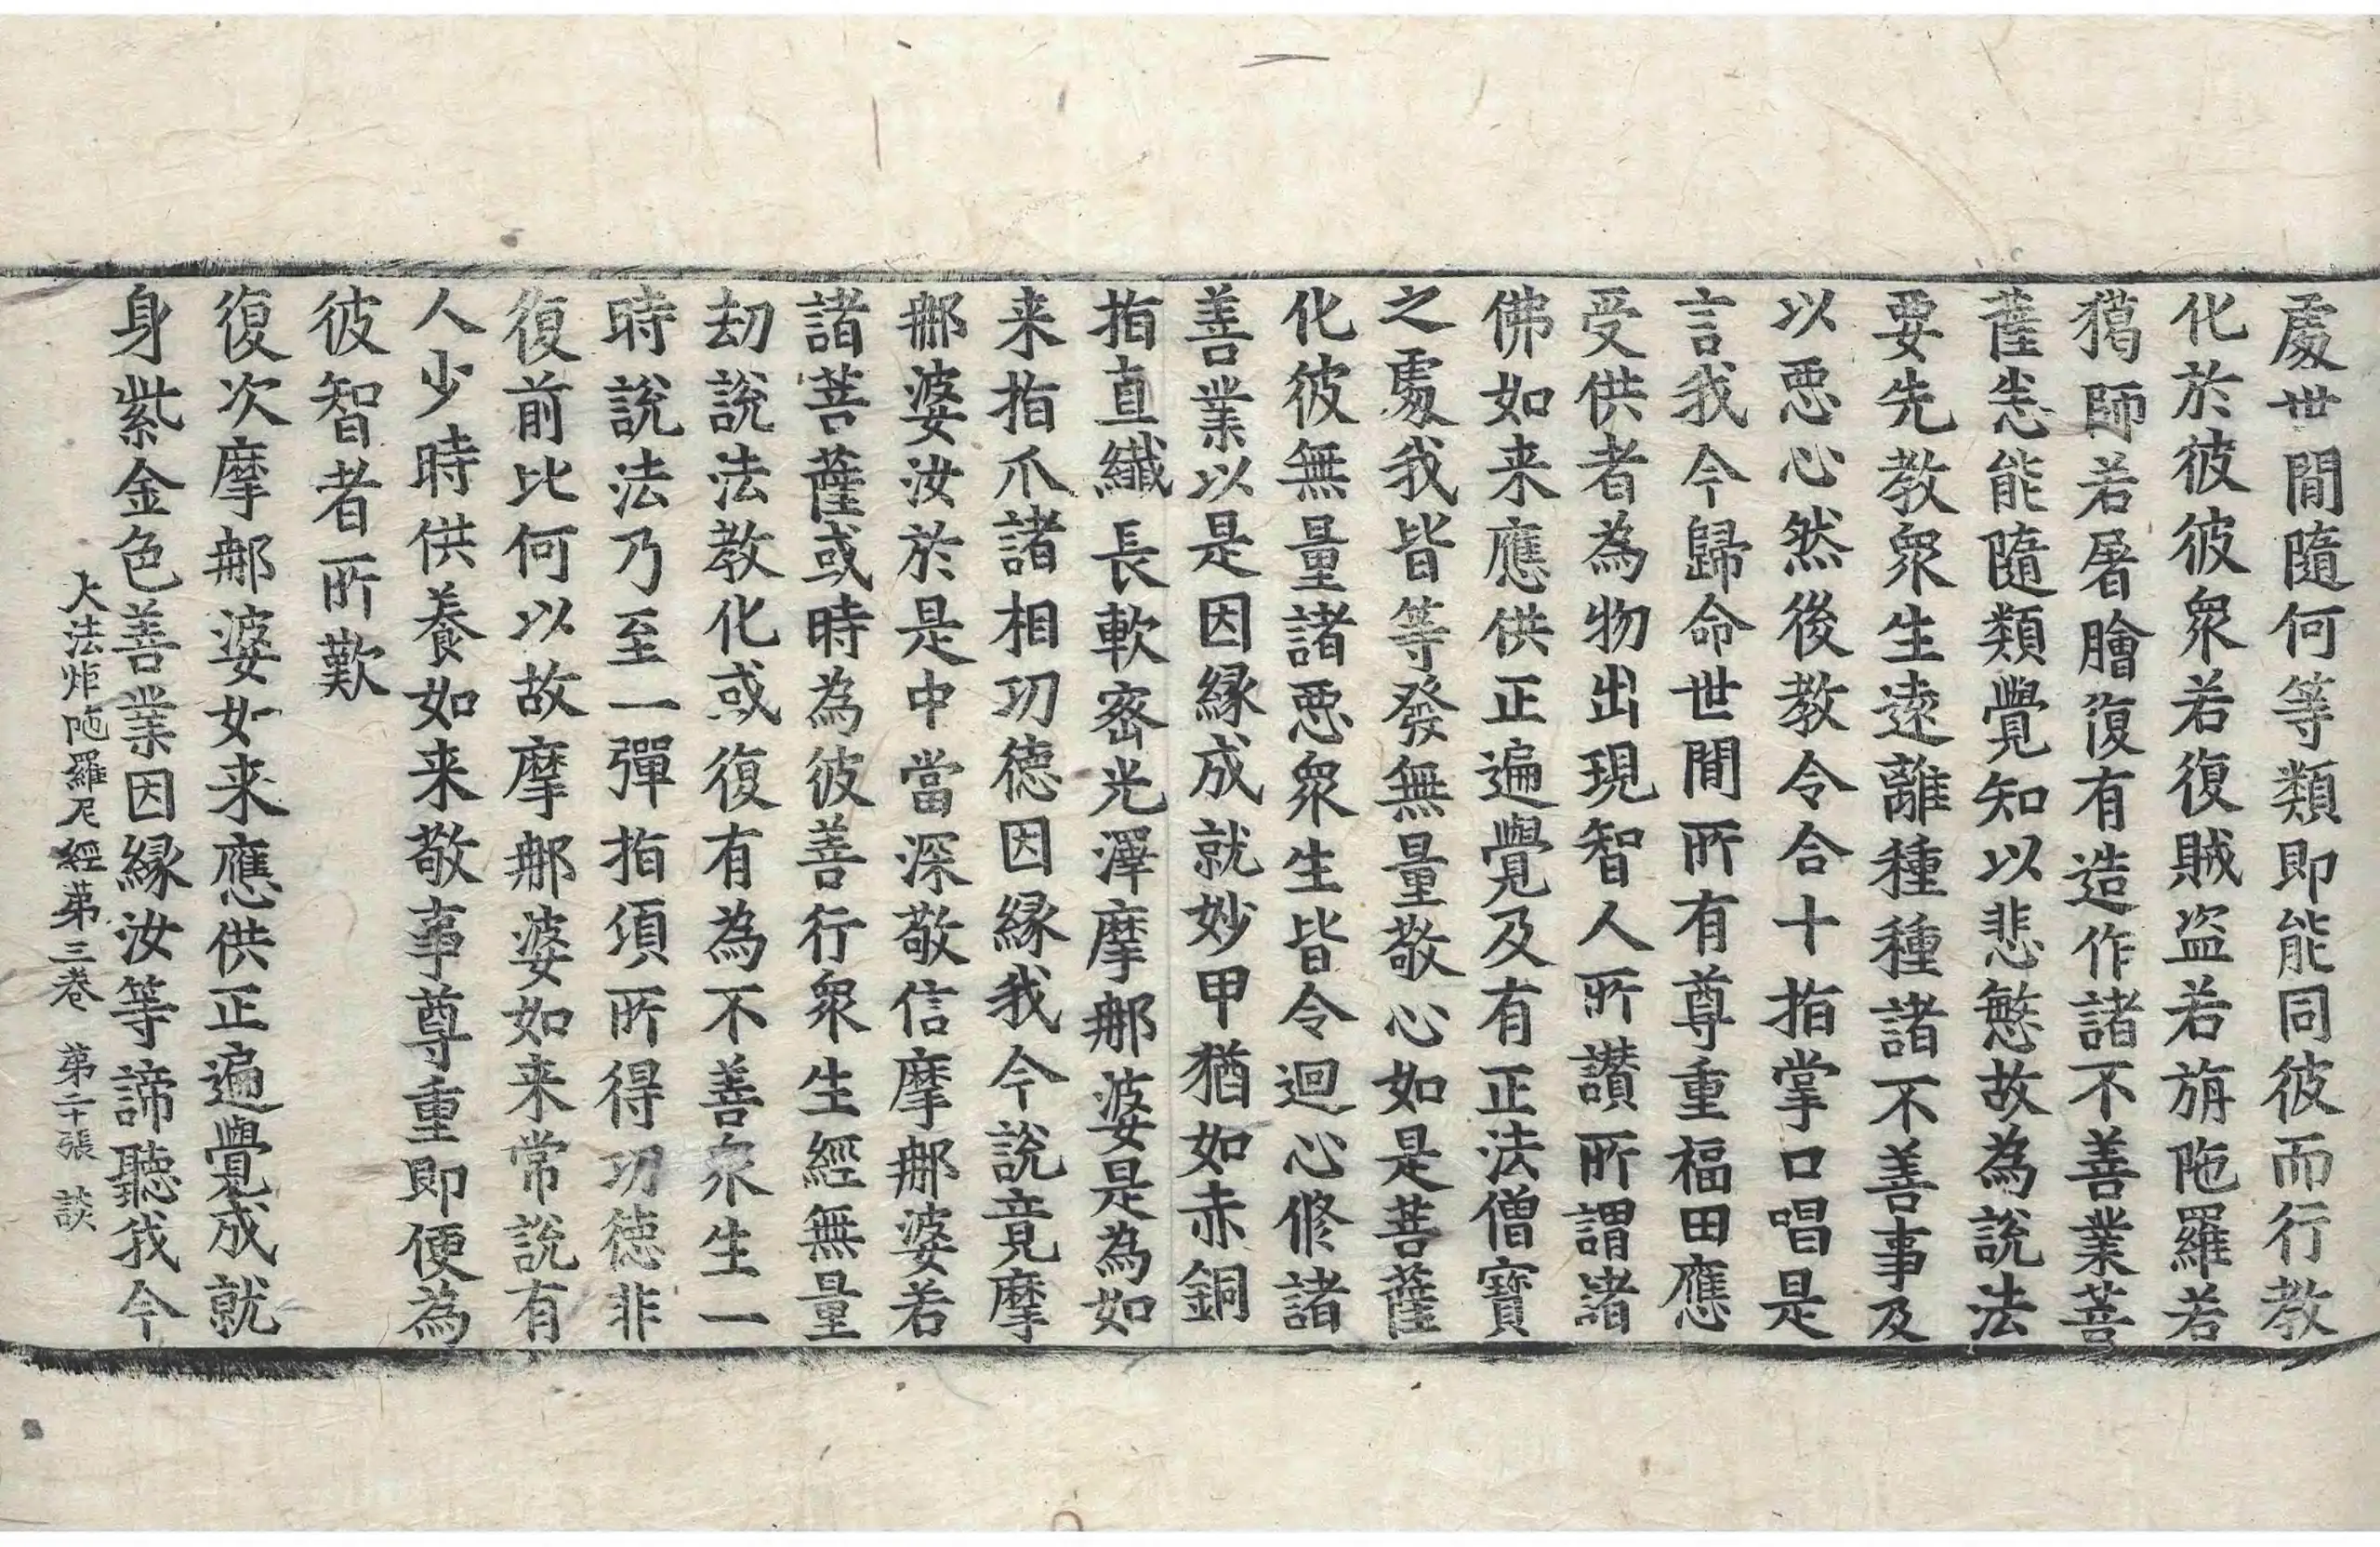 處世間隨何等類即能同彼而行教
化於彼彼衆若復賊盗若旃陁羅若
獦師若屠膾復有造作諸不善業菩
薩悉能隨類覺知以悲慜故為說法
要先教衆生遠離種種諸不善事及
以惡心然後教令合十指掌口唱是
言我今歸命世間所有尊重福田應
受供者為物出現智人所讃所謂諸
佛如来應供正遍覺及有正法僧寶
之處我皆等發無量敬心如是菩薩
化彼無量諸惡衆生皆令迴心修諸
善業以是因緣成就妙甲猶如赤銅
指直纖長軟密光澤摩那婆是為如
来指爪諸相功德因緣我今說竟摩
那婆汝於是中當深敬信摩那婆若
諸菩薩或時為彼善行衆生經無量
劫說法教化或復有為不善衆生一
時說法乃至一彈指須所得功德非
復前比何以故摩那婆如来常說有
人少時供養如来敬事尊重即便為
彼智者所歎
復次摩那婆如来應供正遍覺成就
身紫金色善業因緣汝等諦聽我今
大法炬陁羅尼經第三卷 第二十張 談